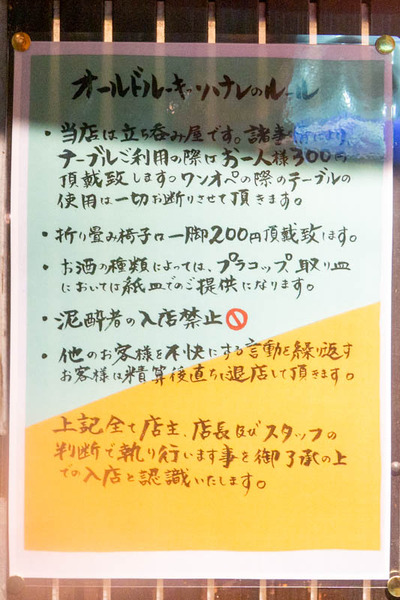 オールドルーキーハナレのルール
・当店は立ち呑み屋です。諸事情により
テーブルご利用の際はお一人様300円
頂戴致します。ワンオペの際のテーブルの
使用は一切お断りさせて頂きます。
・折り畳み椅子は一脚200円頂戴致します。
・お酒の種類によっては、プラコップ、取り皿
においては紙皿でのご提供になります。
・泥酔者の入店禁止
・他のお客様を不快にする言動を繰り返す
お客様は精算後直ちに退店して頂きます。
上記全て店主、店長及びスタッフの
判断で執り行います事を御了承の上
での入店と認識いたします。